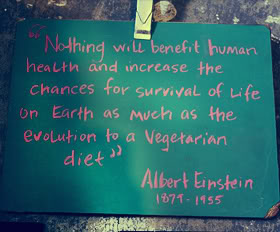 "Nothing will benefit human
health and increase the
chances for survival of Life
on Earth as much as the
evolution to a Vegetarian
diet"
Albert Einstein
1879-1955